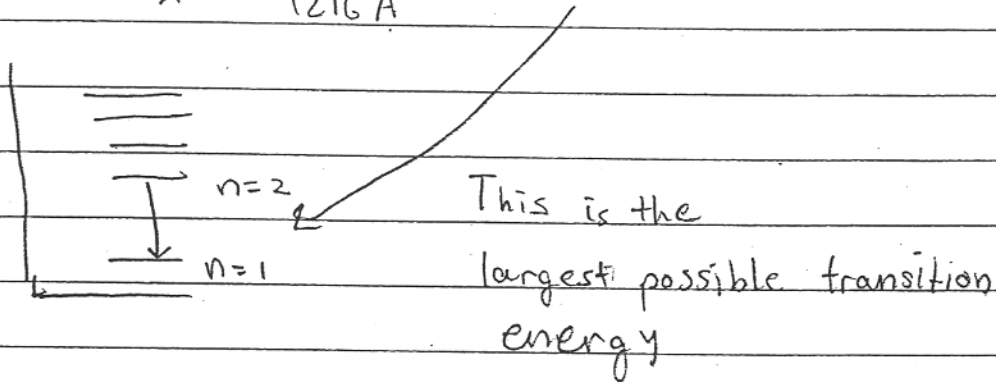 1216 Å
n=2
This is the
n=1
largest possible transition
energy